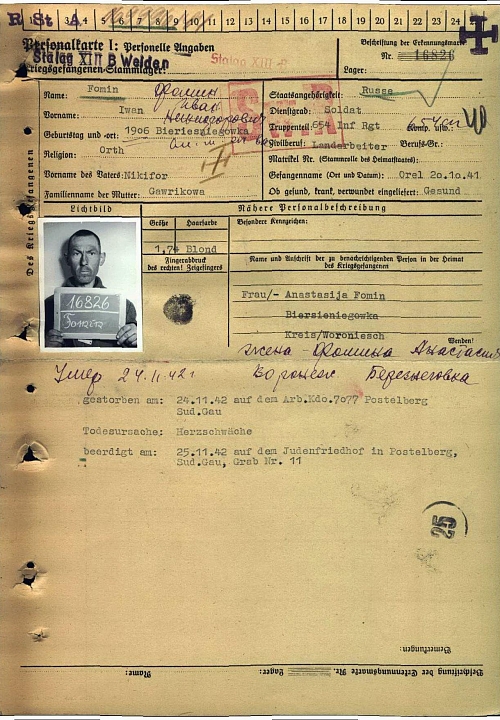 R St A 5 6 7 8 9 10 11 12 13 14 15 16 17 18 19 20 21 22 23 24
Personalkarte I: Personelle Angaben
Stalag XIII B Weiden
Stalag XIII B
Kriegsgefangenen-Stammlager:
Beschriftung der Erkennungsmarke
Nr. 16826
Lager:
Des Kriegsgefangenen
Name: Fomin Фомин
Vorname: Iwan Иван Никифорович
Geburtstag und -ort: 1906 Bieriesniegowka
Religion: Orth
Vorname des Vaters: Nikifor
Familienname der Mutter: Gawrikowa
Staatsangehörigkeit: Russe
Dienstgrad: Soldat
Truppenteil: 654 Inf Rgt Komp. usw.:
Zivilberuf: Landarbeiter Berufs-Gr.:
Matrikel Nr. (Stammrolle des Heimatstaates):
Gefangennahme (Ort und Datum): Orel 20.10.41
Ob gesund, krank, verwundet eingeliefert: Gesund
Lichtbild
Nähere Personalbeschreibung
Größe Haarfarbe
1,74 Blond
Fingerabdruck
des rechten! Zeigefingers
Besondere Kennzeichen:
Name und Anschrift der zu benachrichtigenden Person in der Heimat
des Kriegsgefangenen
Frau/- Anastasija Fomin
Biersieniegowka
Kreis/Woroniesch
Wenden!
16826
жена - Фомина Анастасия
Умер 24.11.42г. Воронеж Березнеговка
gestorben am: 24.11.42 auf dem Arb.Kdo.7077 Postelberg
Sud.Gau
Todesursache; Herzschwäche
beerdigt am: 25.11.42 auf dem Judenfriedhof in Postelberg,
Sud.Gau, Grab Nr. 11
25
Bemerkungen:
Beschriftung der Erkennungsmarke Nr. Lager: Name: